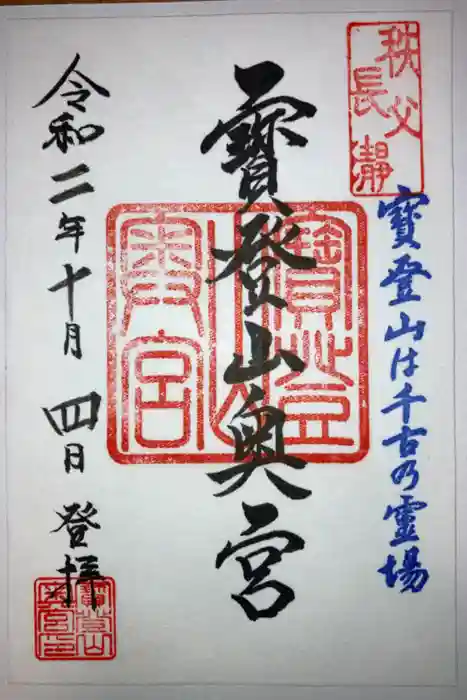 秩父
長瀞
寶登山は千古乃霊場
寶登山奥宮
寶登山
奥宮
令和二年十月四日登拝